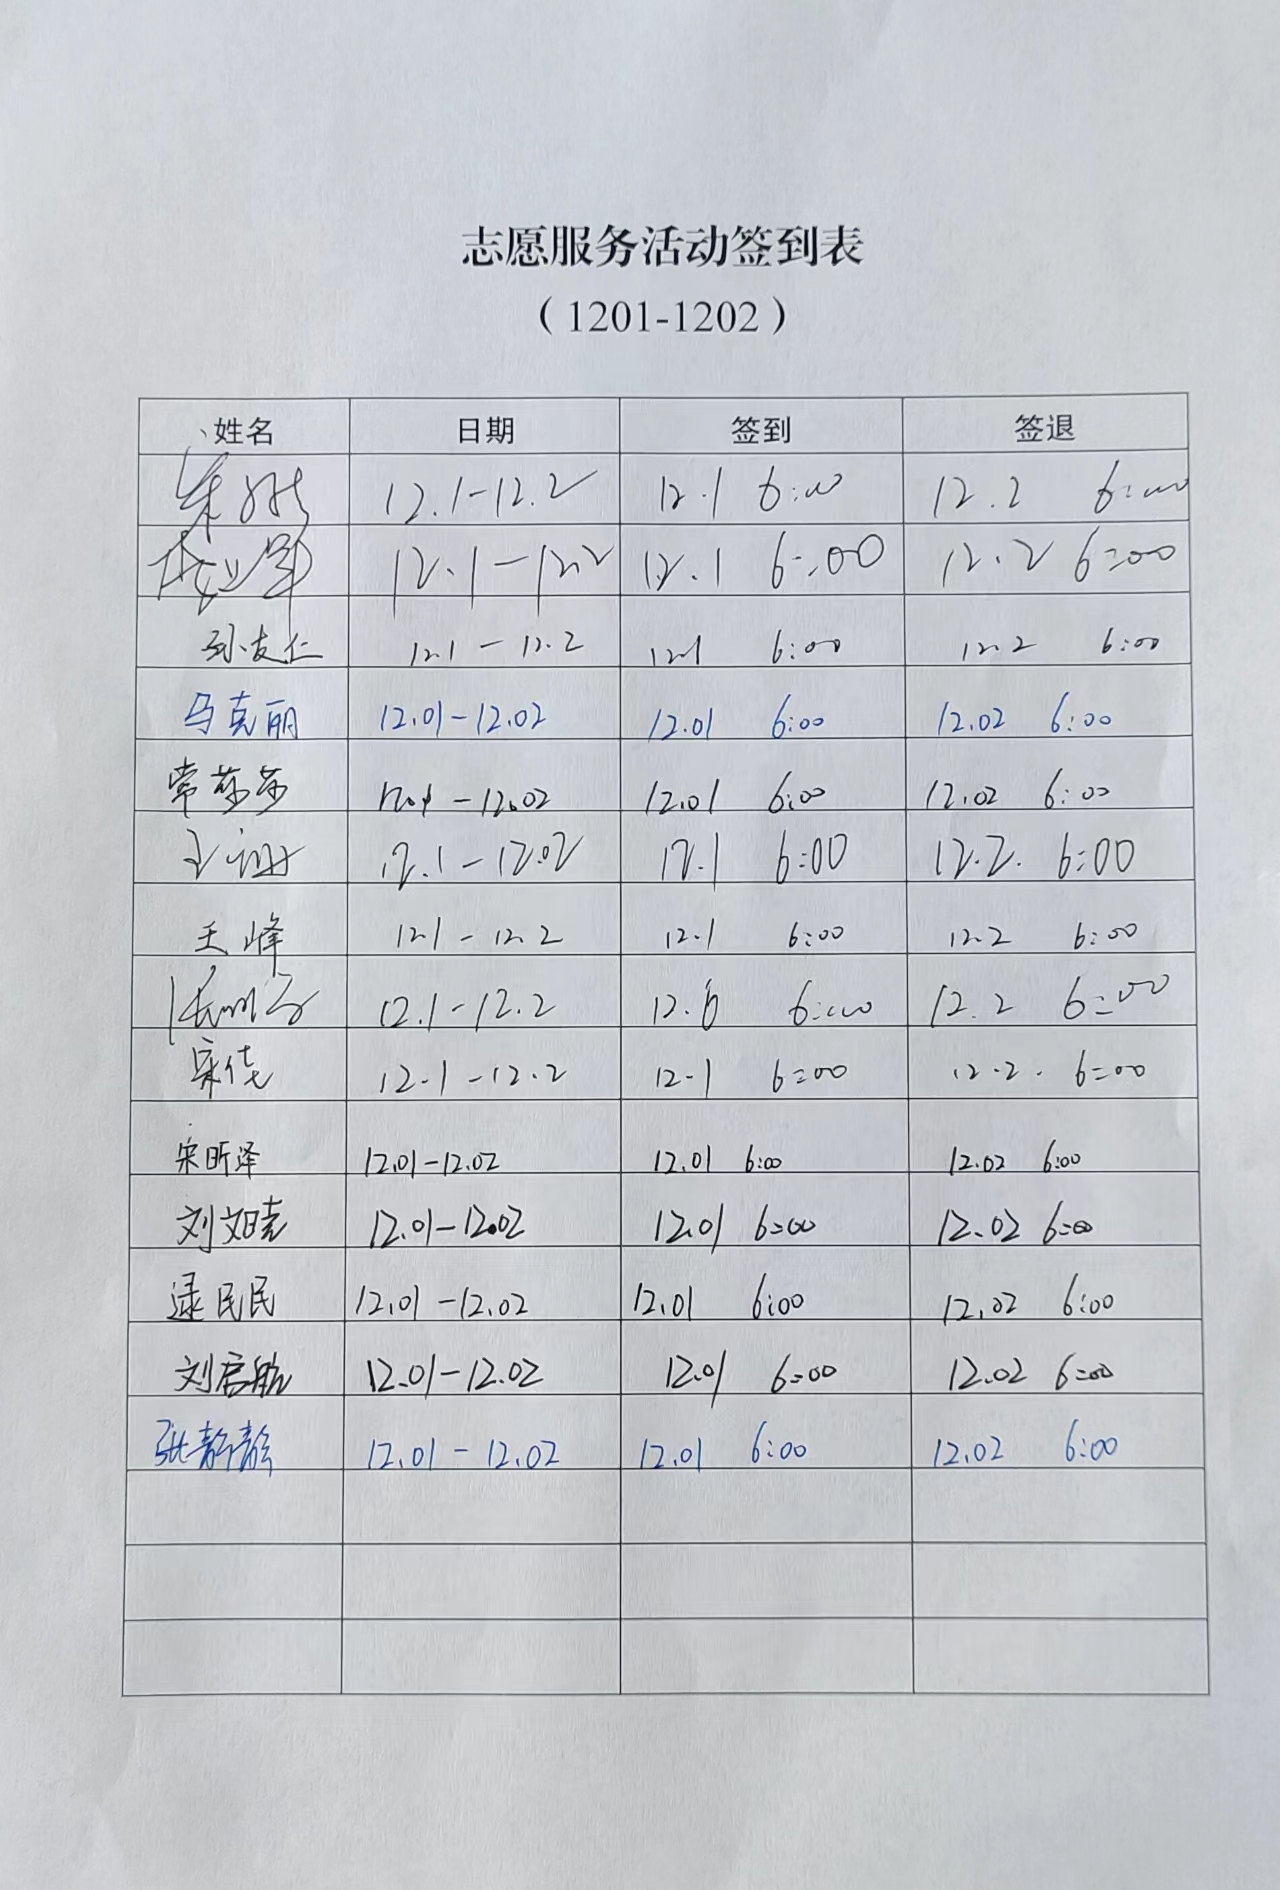 志愿服务活动签到表
（1201-1202）
姓名 日期 签到 签退
12.1-12.2 12.1 6:00 12.2 6:00
12.1-12.2 12.1 6:00 12.2 6:00
孙友仁 12.1-12.2 12.1 6:00 12.2 6:00
马克丽 12.01-12.02 12.01 6:00 12.02 6:00
常莎莎 12.01-12.02 12.01 6:00 12.02 6:00
王 12.1-12.02 12.1 6:00 12.2. 6:00
王峰 12.1-12.2 12.1 6:00 12.2 6:00
12.1-12.2 6:00 12.2 6:00
宋佳 12.1-12.2 12.1 6:00 12.2. 6:00
宋昕泽 12.01-12.02 12.01 6:00 12.02 6:00
刘文晓 12.01-12.02 12.01 6:00 12.02 6:00
逯民民 12.01-12.02 12.01 6:00 12.02 6:00
刘启航 12.01-12.02 12.01 6:00 12.02 6:00
张静静 12.01-12.02 12.01 6:00 12.02 6:00